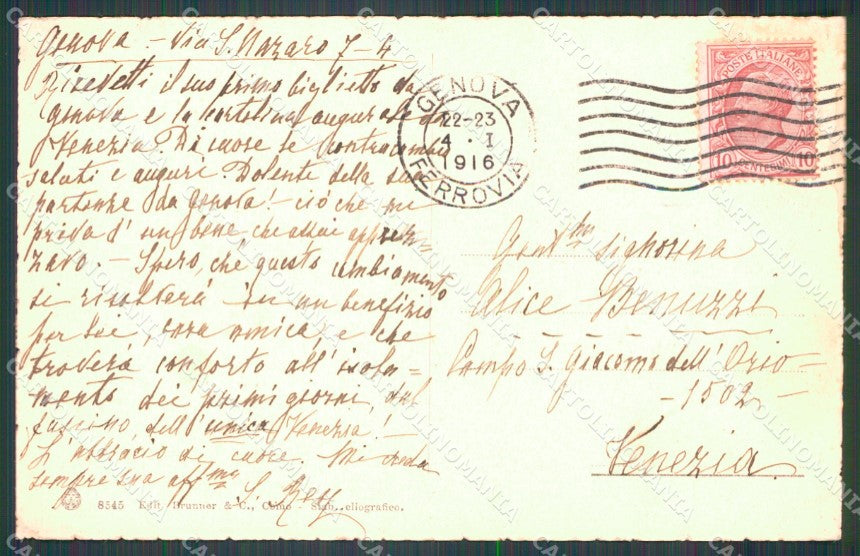 Genova - Via S. Nazaro 7-4
Ricevetti il suo primo biglietto da
Genova e la cartolina augurale da
Venezia. Di cuore le contraccambio
saluti e auguri. Dolente della sua
partenza da Genova! - ciò che mi
priva d' un bene che assai apprez-
zavo. - Spero, che questo cambiamento
si risolverà in un benefizio
per Lei, cara amica, e che
troverà conforto all' isola=
mento dei primi giorni, dal
fascino dell' unica Venezia!
L' abbraccio di cuore. Mi creda
sempre sua aff.ma S.
8545 Edit. Brunner & C., Como - Stab. eliografico.
GENOVA
22-23
4 · I
1916
FERROVIA
POSTE ITALIANE
10 CENTESIMI 10
Gent.ma Signorina
Alice Benuzzi
Campo S. Giacomo dell' Orio
- 1502 -
Venezia
CARTOLINOMANIA